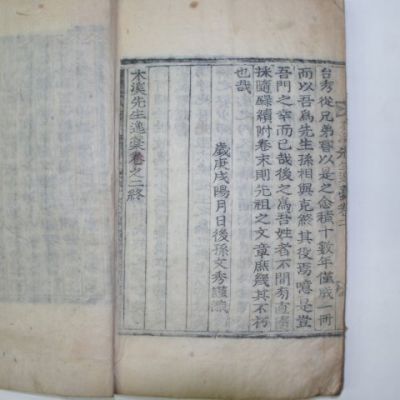 台秀從兄弟實以是之念積十數年僅成一冊
而以吾爲先生孫相與克終其役焉噫是豈
吾門之幸而已哉後之爲吾姓者不間有直
採隨錄續附卷末則先祖之文章庶幾其不朽
也哉
歲庚戌陽月日後孫文秀謹識
木溪先生逸稾卷之二終